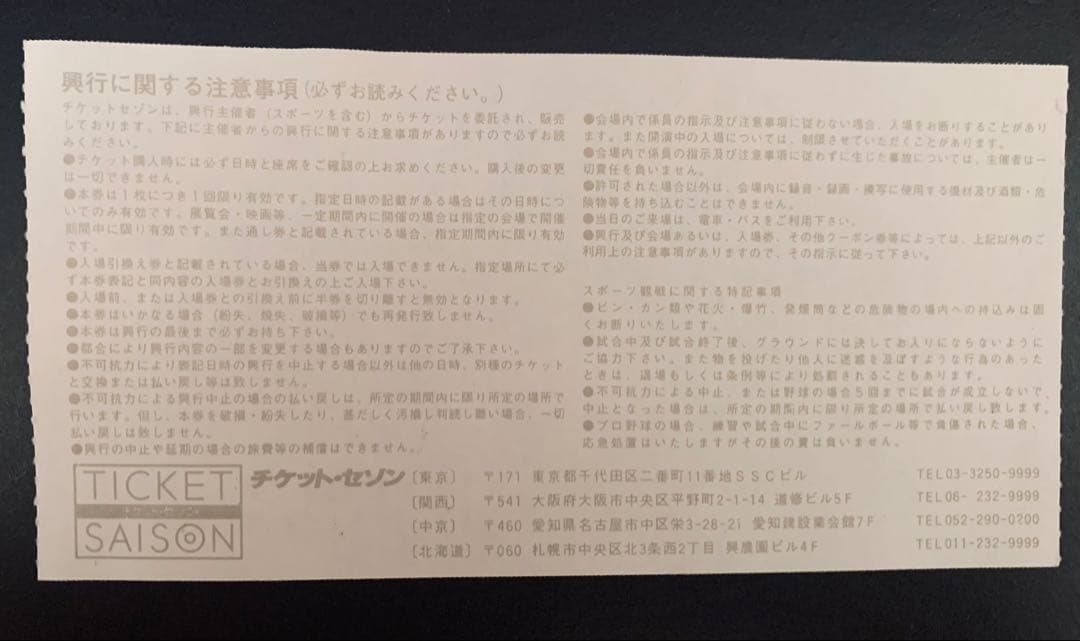 興行に関する注意事項(必ずお読みください。)
チケットセゾンは、興行主催者（スポーツを含む）からチケットを委託され、販売
しております。下記に主催者からの興行に関する注意事項がありますので必ずお読
みください。
●チケット購入時には必ず日時と座席をご確認の上お求めください。購入後の変更
は一切できません。
●本券は1枚につき1回限り有効です。指定日時の記載がある場合はその日時につ
いてのみ有効です。展覧会・映画等、一定期間内に開催の場合は指定の会場で開催
期間中に限り有効です。また通し券と記載されている場合、指定期間内に限り有効
です。
●入場引換え券と記載されている場合、当券では入場できません。指定場所にて必
ず本券表記と同内容の入場券とお引換えの上ご入場下さい。
●入場前、または入場券との引換え前に半券を切り離すと無効となります。
●本券はいかなる場合（紛失、焼失、破損等）でも再発行致しません。
●本券は興行の最後まで必ずお持ち下さい。
●都合により興行内容の一部を変更する場合もありますのでご了承下さい。
●不可抗力により表記日時の興行を中止する場合以外は他の日時、別種のチケット
と交換または払い戻し等は致しません。
●不可抗力による興行中止の場合の払い戻しは、所定の期間内に限り所定の場所で
行います。但し、本券を破損・紛失したり、甚だしく汚損し判読し難い場合、一切
払い戻しは致しません。
●興行の中止や延期の場合の旅費等の補償はできません。
●会場内で係員の指示及び注意事項に従わない場合、入場をお断りすることがあり
ます。また開演中の入場については、制限させていただくことがあります。
●会場内で係員の指示及び注意事項に従わずに生じた事故については、主催者は一
切責任を負いません。
●許可された場合以外は、会場内に録音・録画・撮写に使用する機材及び酒類・危
険物等を持ち込むことはできません。
●当日のご来場は、電車・バスをご利用下さい。
●興行及び会場あるいは、入場券、その他クーポン券等によっては、上記以外のご
利用上の注意事項がありますので、その指示に従って下さい。
スポーツ観戦に関する特記事項
●ビン・カン類や花火・爆竹、発煙筒などの危険物の場内への持込みは固
くお断りいたします。
●試合中及び試合終了後、グラウンドには決してお入りにならないように
ご協力下さい。また物を投げたり他人に迷惑を及ぼすような行為のあった
ときは、退場もしくは条例等により処罰されることもあります。
●不可抗力による中止、または野球の場合5回までに試合が成立しないで、
中止となった場合は、所定の期間内に限り所定の場所で払い戻し致します。
●プロ野球の場合、練習や試合中にファールボール等で負傷された場合、
応急処置はいたしますがその後の費は負いません。
TICKET
チケットセゾン
SAISON
チケット・セゾン
〔東京〕 〒171 東京都千代田区二番町11番地SSCビル TEL03-3250-9999
〔関西〕 〒541 大阪府大阪市中央区平野町2-1-14 道修ビル5F TEL06- 232-9999
〔中京〕 〒460 愛知県名古屋市中区栄3-28-21 愛知建設業会館7F TEL052-290-0200
〔北海道〕 〒060 札幌市中央区北3条西2丁目 興農園ビル4F TEL011-232-9999